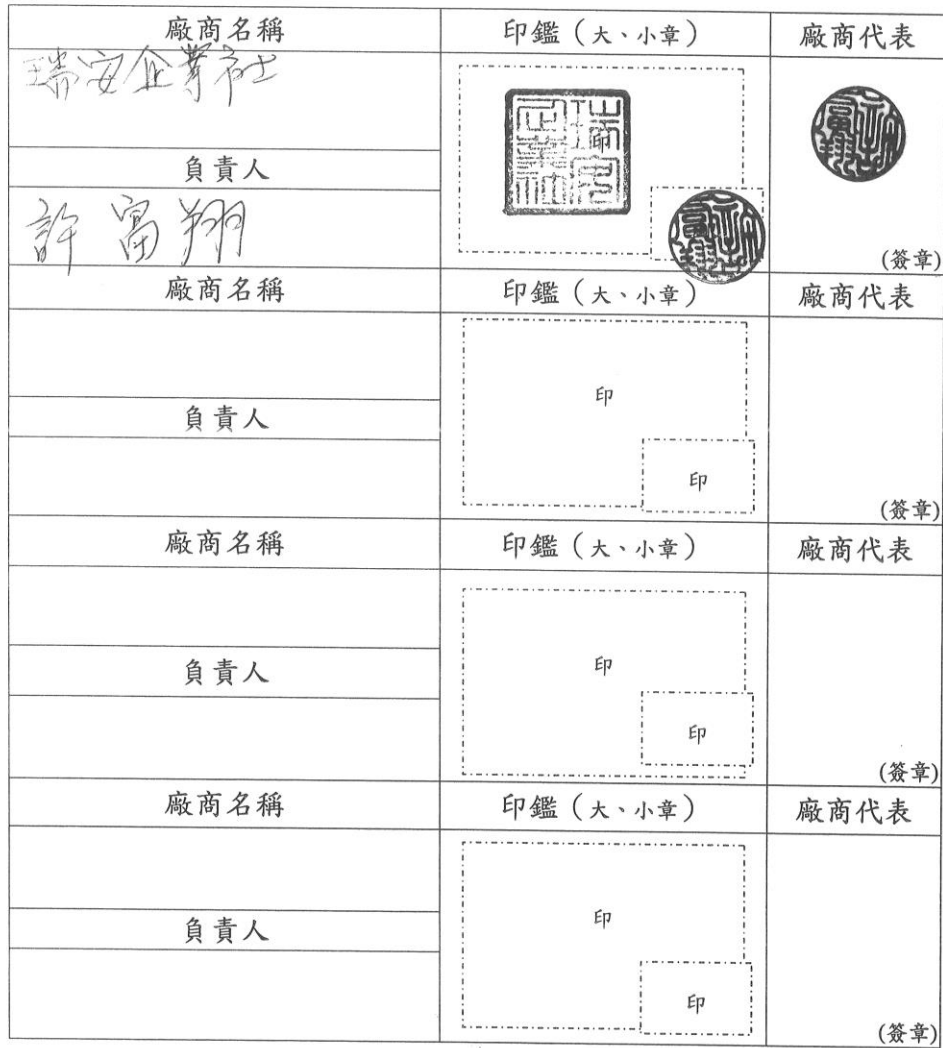 廠商名稱 印鑑（大、小章） 廠商代表
瑞安企業社
瑞安企業社
印
負責人
許富翔
(簽章)
廠商名稱 印鑑（大、小章） 廠商代表
印
負責人
印
(簽章)
廠商名稱 印鑑（大、小章） 廠商代表
印
負責人
印
(簽章)
廠商名稱 印鑑（大、小章） 廠商代表
印
負責人
印
(簽章)